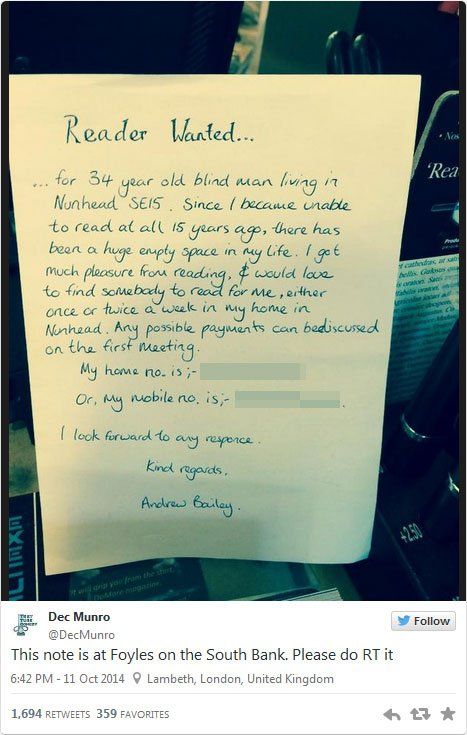 Reader Wanted...
... for 34 year old blind man living in
Nunhead SE15. Since I became unable
to read at all 15 years ago, there has
been a huge empty space in my life. I get
much pleasure from reading, & would love
to find somebody to read for me, either
once or twice a week in my home in
Nunhead. Any possible payments can bediscussed
on the first meeting.
My home no. is;-
Or, my mobile no. is;-
I look forward to any responce.
Kind regards,
Andrew Bailey.
'Rea
£2.50
it will grip you from the start,
magazine.
Dec Munro
@DecMunro
Follow
This note is at Foyles on the South Bank. Please do RT it
6:42 PM - 11 Oct 2014 Lambeth, London, United Kingdom
1,694 RETWEETS 359 FAVORITES